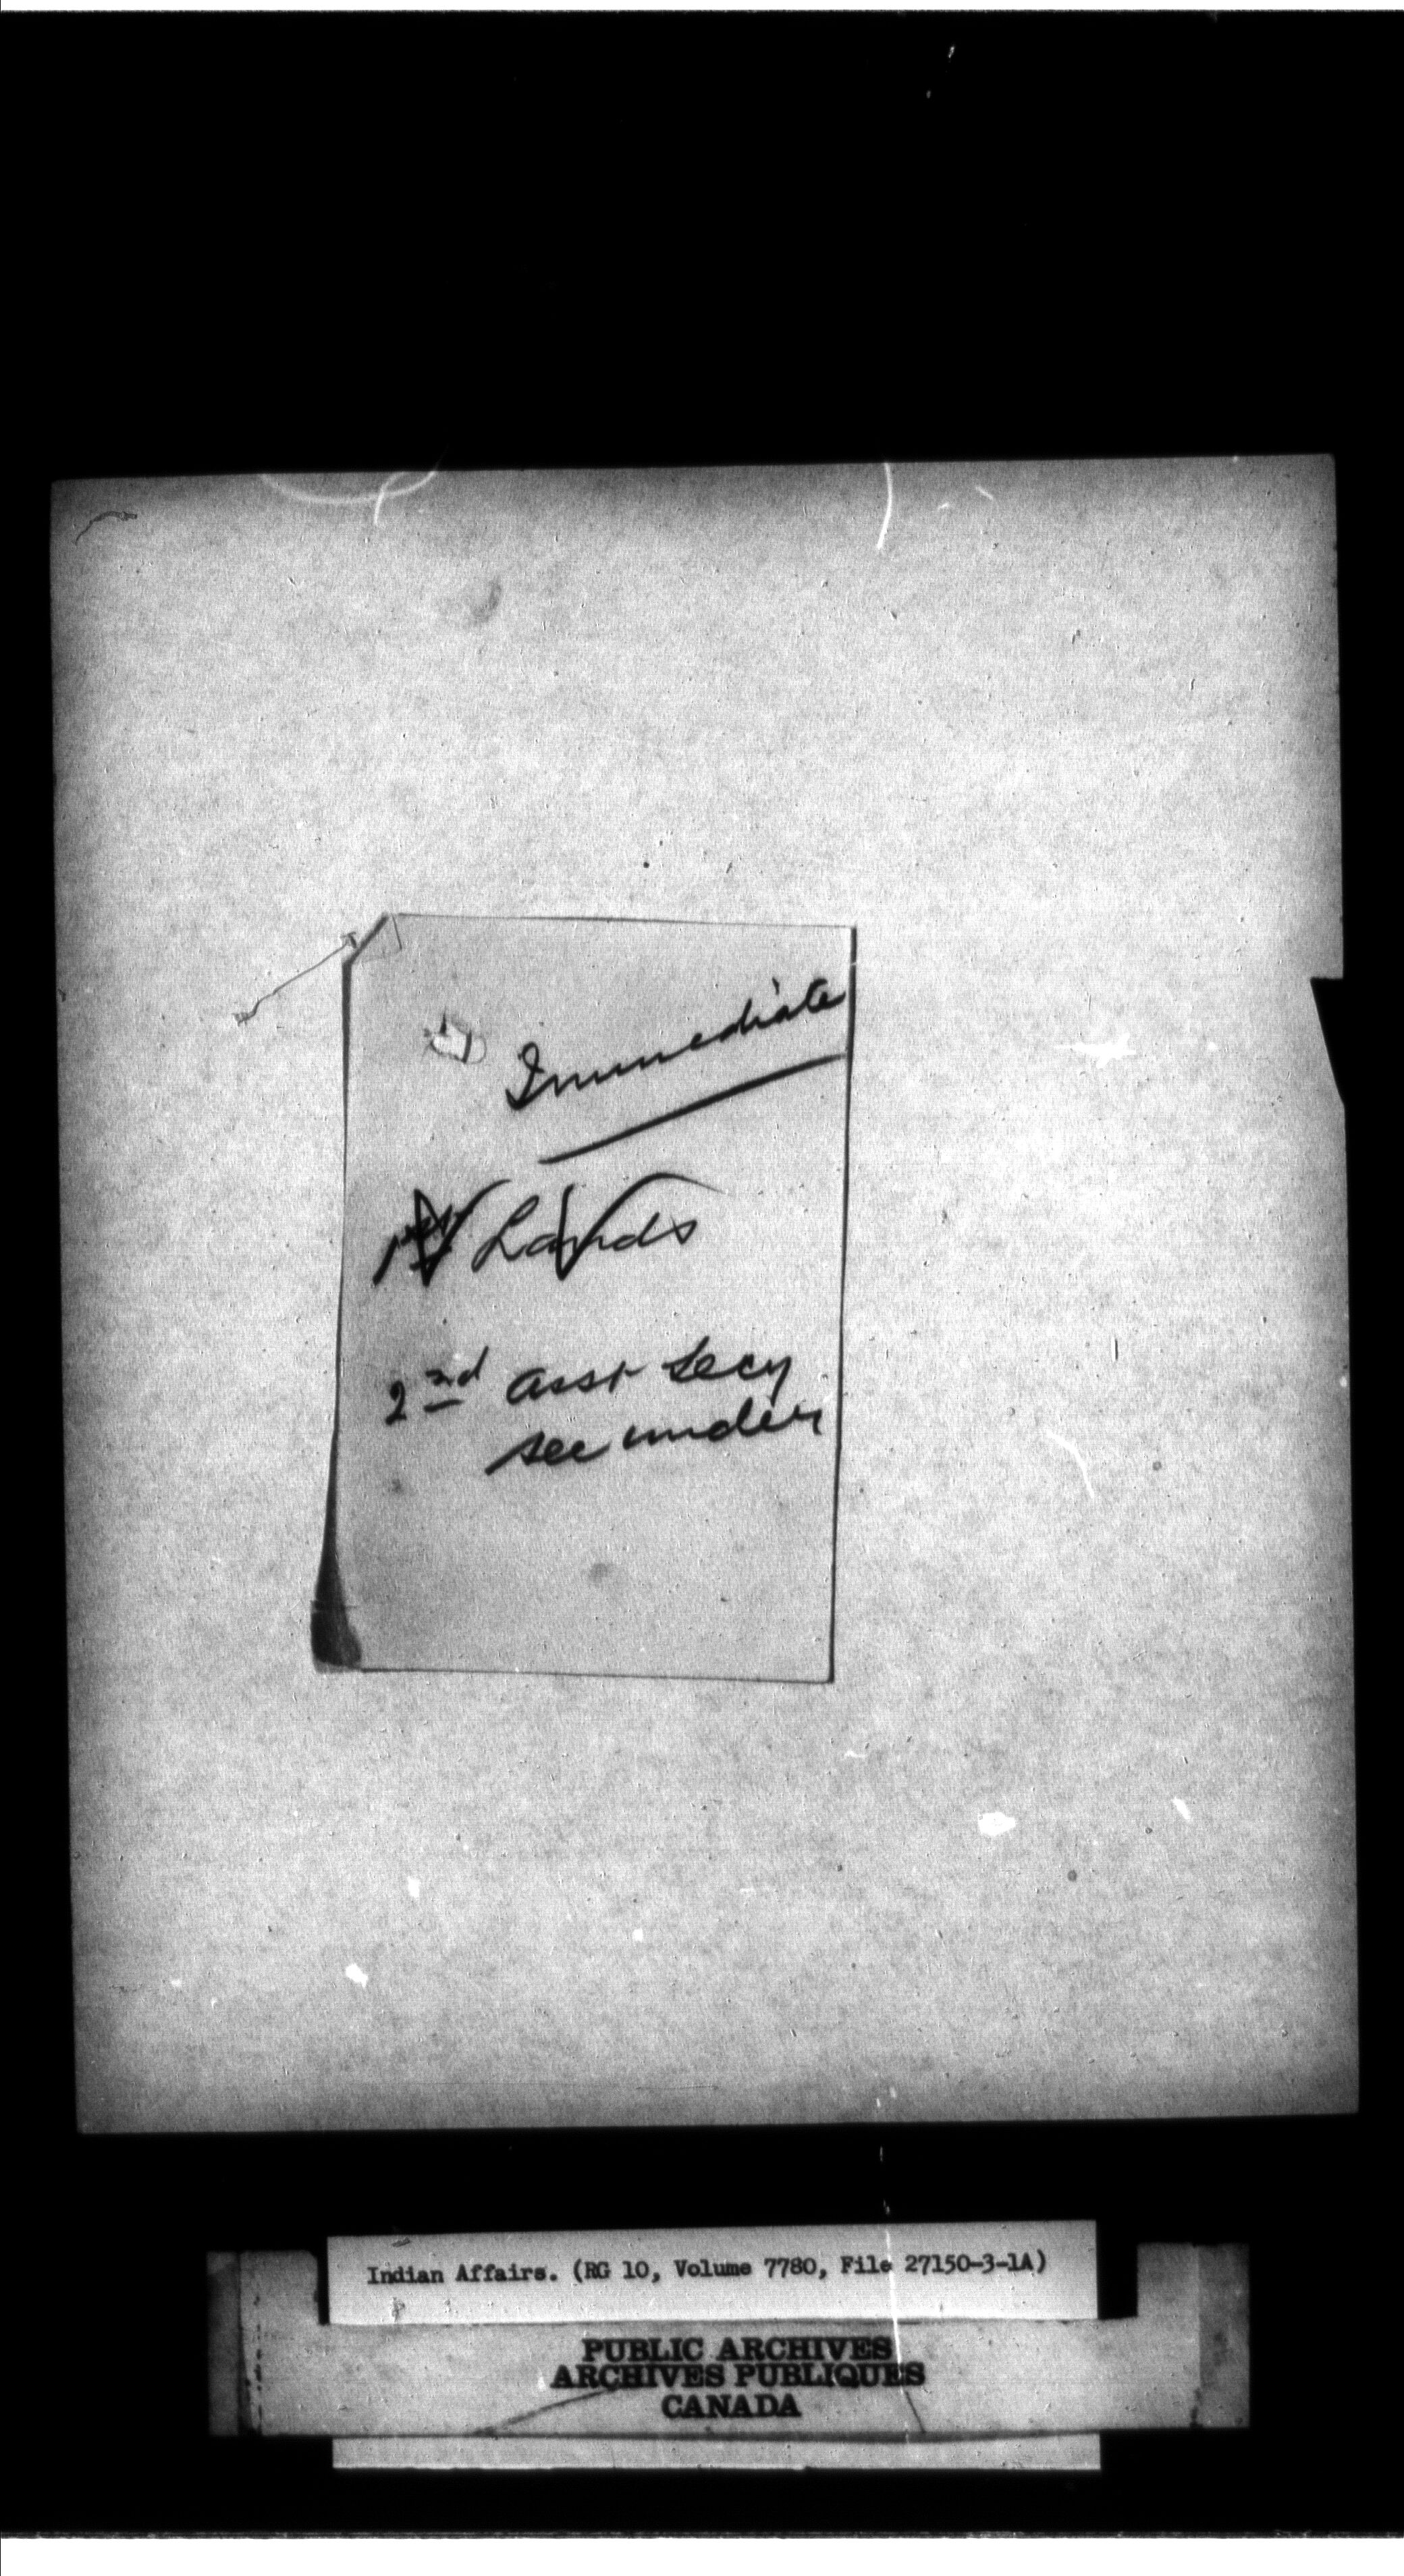 Immediate
1st Lands
2nd asst Secy
see under
Indian Affairs. (RG 10, Volume 7780, File 27150-3-1A)
PUBLIC ARCHIVES
ARCHIVES PUBLIQUES
CANADA